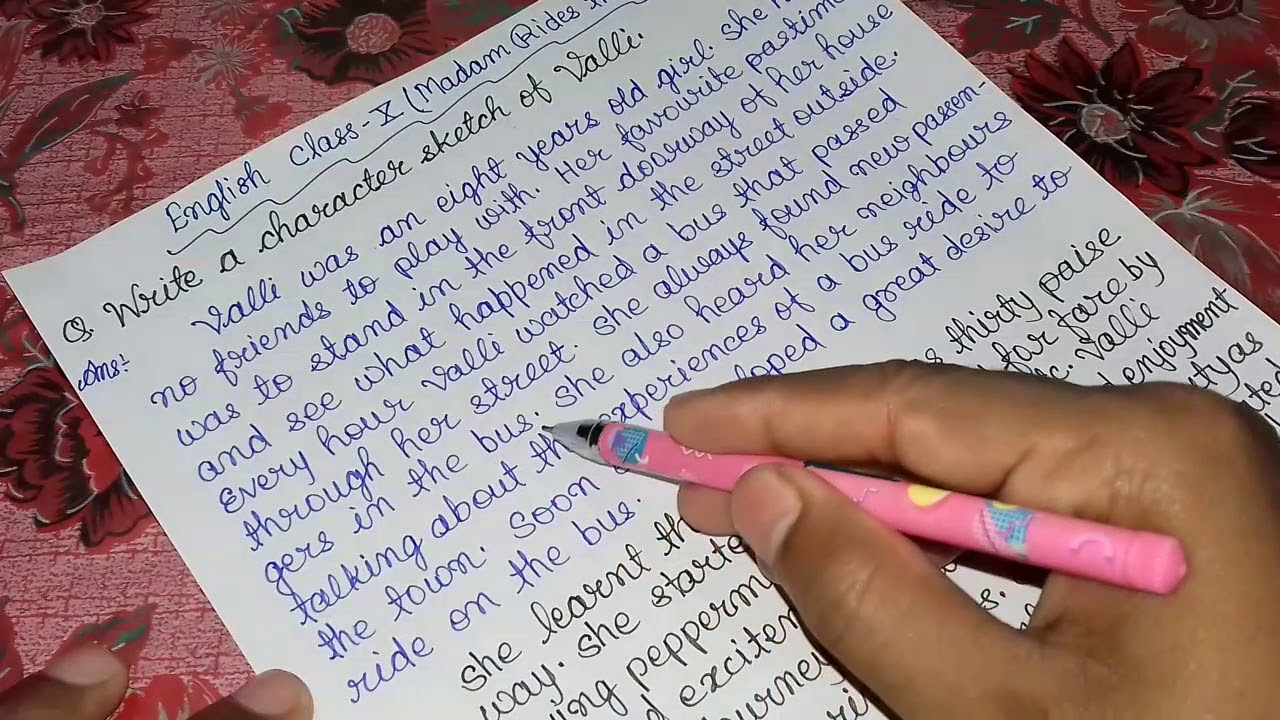 English Class-X (Madam Rides
Q. Write a character sketch of Valli.
Ans:
Valli was an eight years old girl. she
no friends to play with. Her favourite pastime
was to stand in the front doorway of her house
and see what happened in the street outside.
Every hour Valli watched a bus that passed
through her street. She always found new passen-
gers in the bus. She also heard her neighbours
talking about the experiences of a bus ride to
the town. Soon a great desire to
ride on the bus.
thirty paise
for fare by
Valli
enjoyment
as
She learnt
way. She
excitem